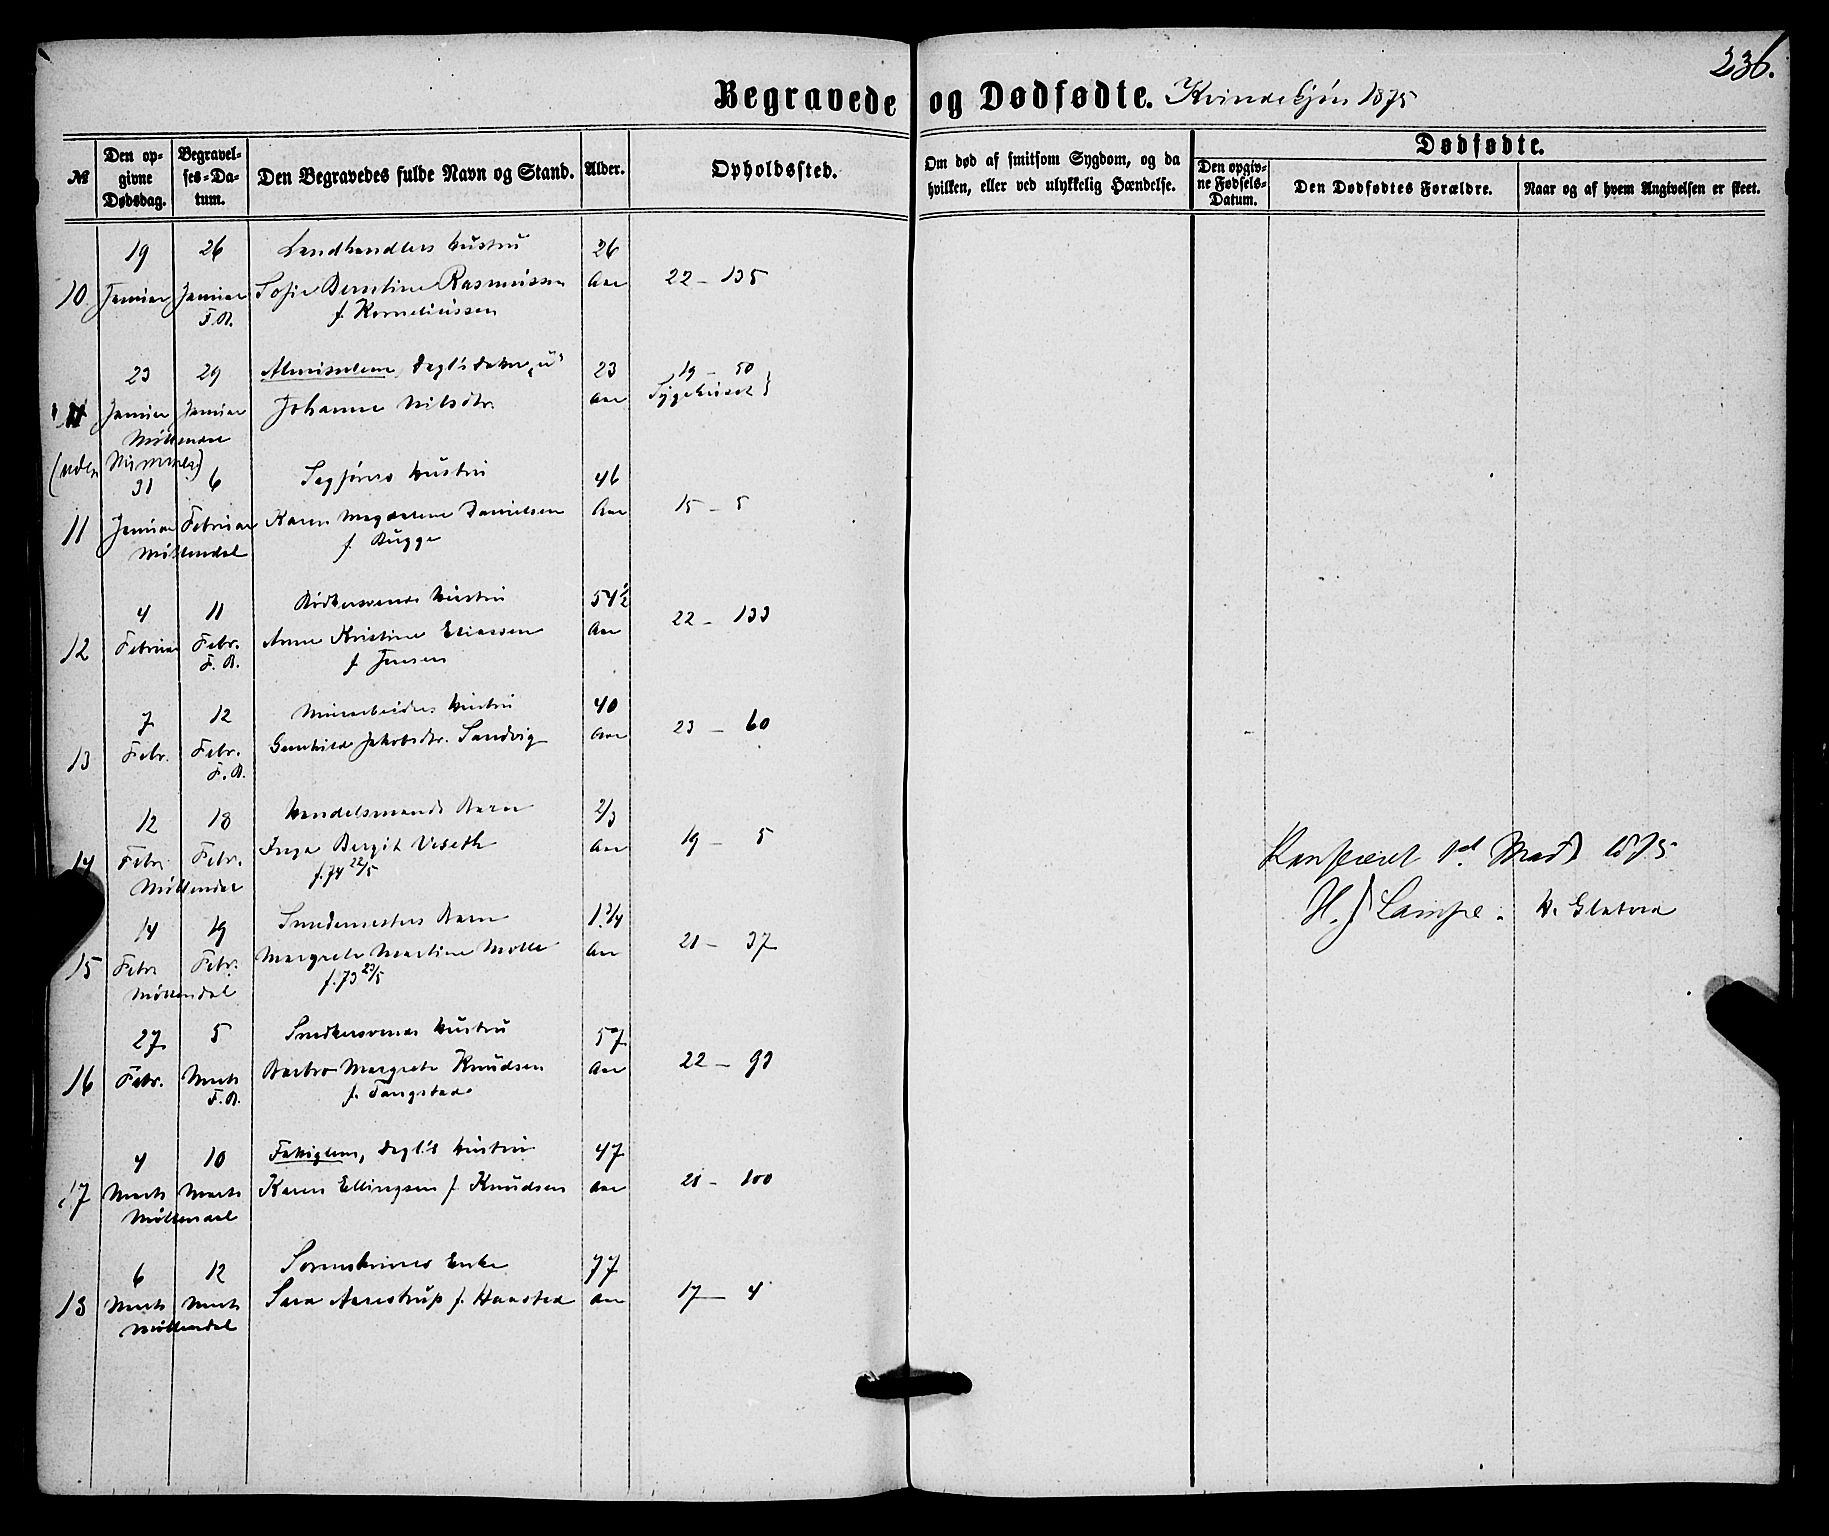 236.
Begravede og Dødfødte. Kvindekjön 1875
№ Den opgivne Dødsdag. Begravelses-Datum. Den Begravedes fulde Navn og Stand. Alder. Opholdssted. Om død af smitsom Sygdom, og da hvilken, eller ved ulykkelig Hændelse. Dødfødte.
Den opgivne Fødsels-Datum. Den Dødfødtes Forældre. Naar og af hvem Angivelsen er skeet.
19 26 Landhandlers Hustru 26
10 Januar Januar Sofie Berntine Rasmussen Aar 22 - 135
F.B. f. Korneliussen
23 29 Almisselem, Dagl's Datter 23 19 - 50
Januar Januar Johanne Nilsdtr. Aar Sygehuset
Möllendal
(uden Nummer)
31 6 Hustru 46
11 Januar Februar Karen Magdalene Danielsen Aar 15 - 5
Möllendal f. Bugge
4 11 Bödkersvends Hustru 54 1/2
12 Februar Febr. Anne Kristine Eliassen Aar 22 - 133
F.B. f. Jensen
7 12 Murarbeiders Hustru 40
13 Febr. Febr. Gunhild Jakobsdtr. Sandvig Aar 23 - 60
F.B.
12 18 Handelsmands Barn 2/3
14 Febr. Febr. Inga Bergit Viseth Aar 19 - 5
Möllendal f. 74 22/5
Konfereret 1875
H. J. Lampe. K. Glatved
14 19 Smedemesters Barn 1 3/4
15 Febr. Febr. Margrete Martine Molle Aar 21 - 37
Möllendal f. 73 23/5
27 5 Snedkersvends Hustru 57
16 Febr. Marts Barbro Margrete Knudsen Aar 22 - 93
F.B. f. Tangstad
4 10 Fattiglem, Dagl's Hustru 47
17 Marts Marts Karen Ellingsen f. Knudsen Aar 21 - 100
Möllendal
6 12 Sorenskrivers Enke 77
18 Marts Marts Sara Aarestrup f. Haasted Aar 17 - 4
Möllendal